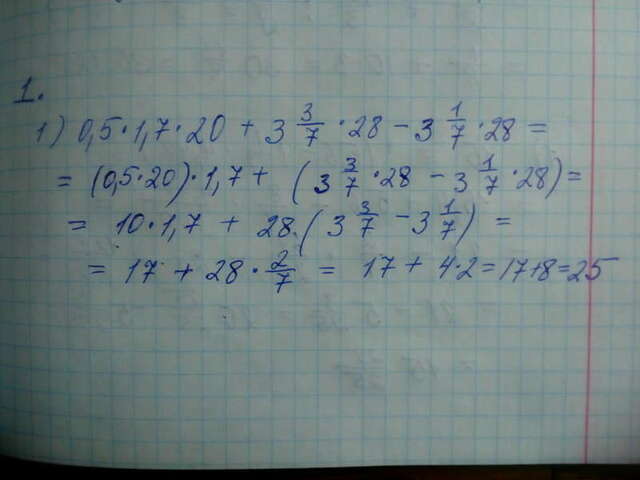 1.
1) 0,5·1,7·20 + 3 3/7 ·28 – 3 1/7 ·28 =
= (0,5·20)·1,7 + (3 3/7 ·28 – 3 1/7 ·28) =
= 10·1,7 + 28·(3 3/7 – 3 1/7) =
= 17 + 28 · 2/7 = 17 + 4·2 = 17+8 = 25